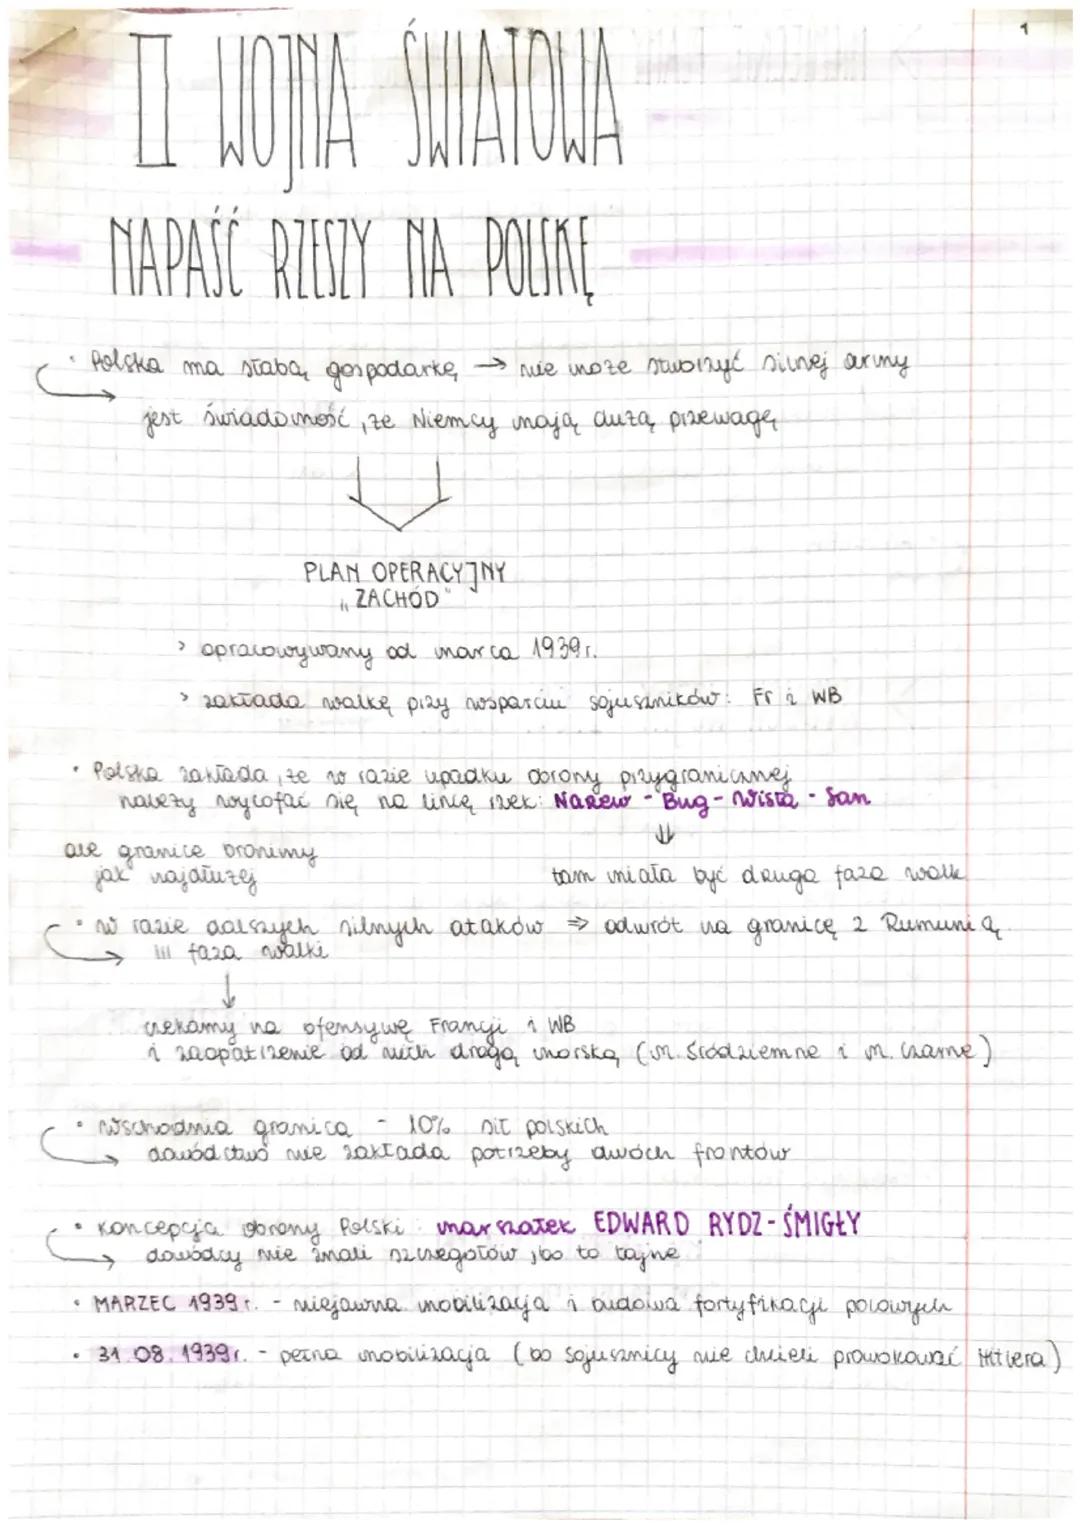 1
II WOJNA ŚWIATOWA
NAPAŚĆ RZESZY NA POLSKĘ
• Polska ma słabą gospodarkę → nie może stworzyć silnej army
jest świadomość, że Niemcy mają dużą przewagę
PLAN OPERACYJNY
„ZACHÓD"
> opracowywany od marca 1939 r.
> zakłada walkę przy wsparciu sojuszników: Fr i WB
• Polska zakłada, że w razie upadku obrony przygranicznej
należy wycofać się na linię rzek: Narew - Bug - Wisła - San
ale granice bronimy
jak najdłużej
tam miała być druga faza walk
• w razie dalszych silnych ataków ⇒ odwrót na granicę z Rumunią
III faza walki
czekamy na ofensywę Francji i WB
i zaopatrzenie od nich drogą morską (m. Śródziemne i m. Czarne)
• Wschodnia granica - 10% sił polskich
dowództwo nie zakłada potrzeby dwóch frontów
• Koncepcja obrony Polski: marszałek EDWARD RYDZ-ŚMIGŁY
dowódcy nie znali szczegółów, bo to tajne
• MARZEC 1939 r. - niejawna mobilizacja i budowa fortyfikacji polowych
• 31.08.1939 r. - pełna mobilizacja (bo sojusznicy nie chcieli prowokować Hitlera)